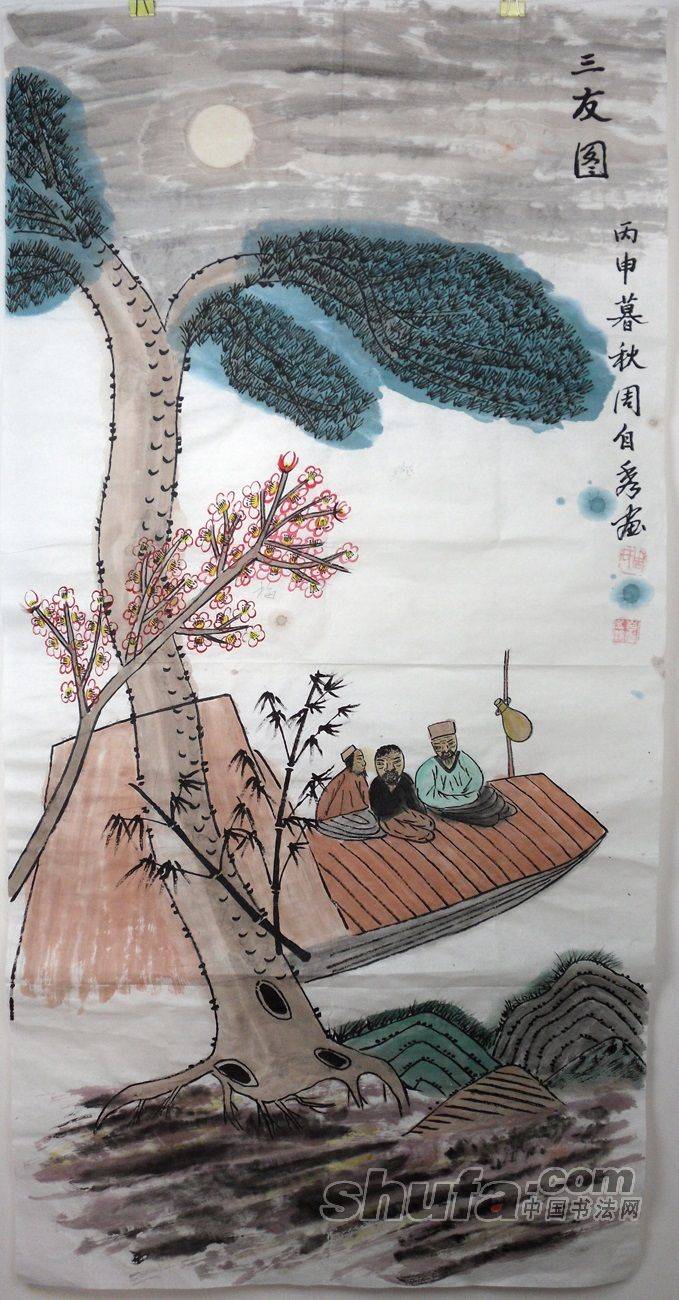 三友图
丙申暮秋周自秀画
shufa.com
中国书法网